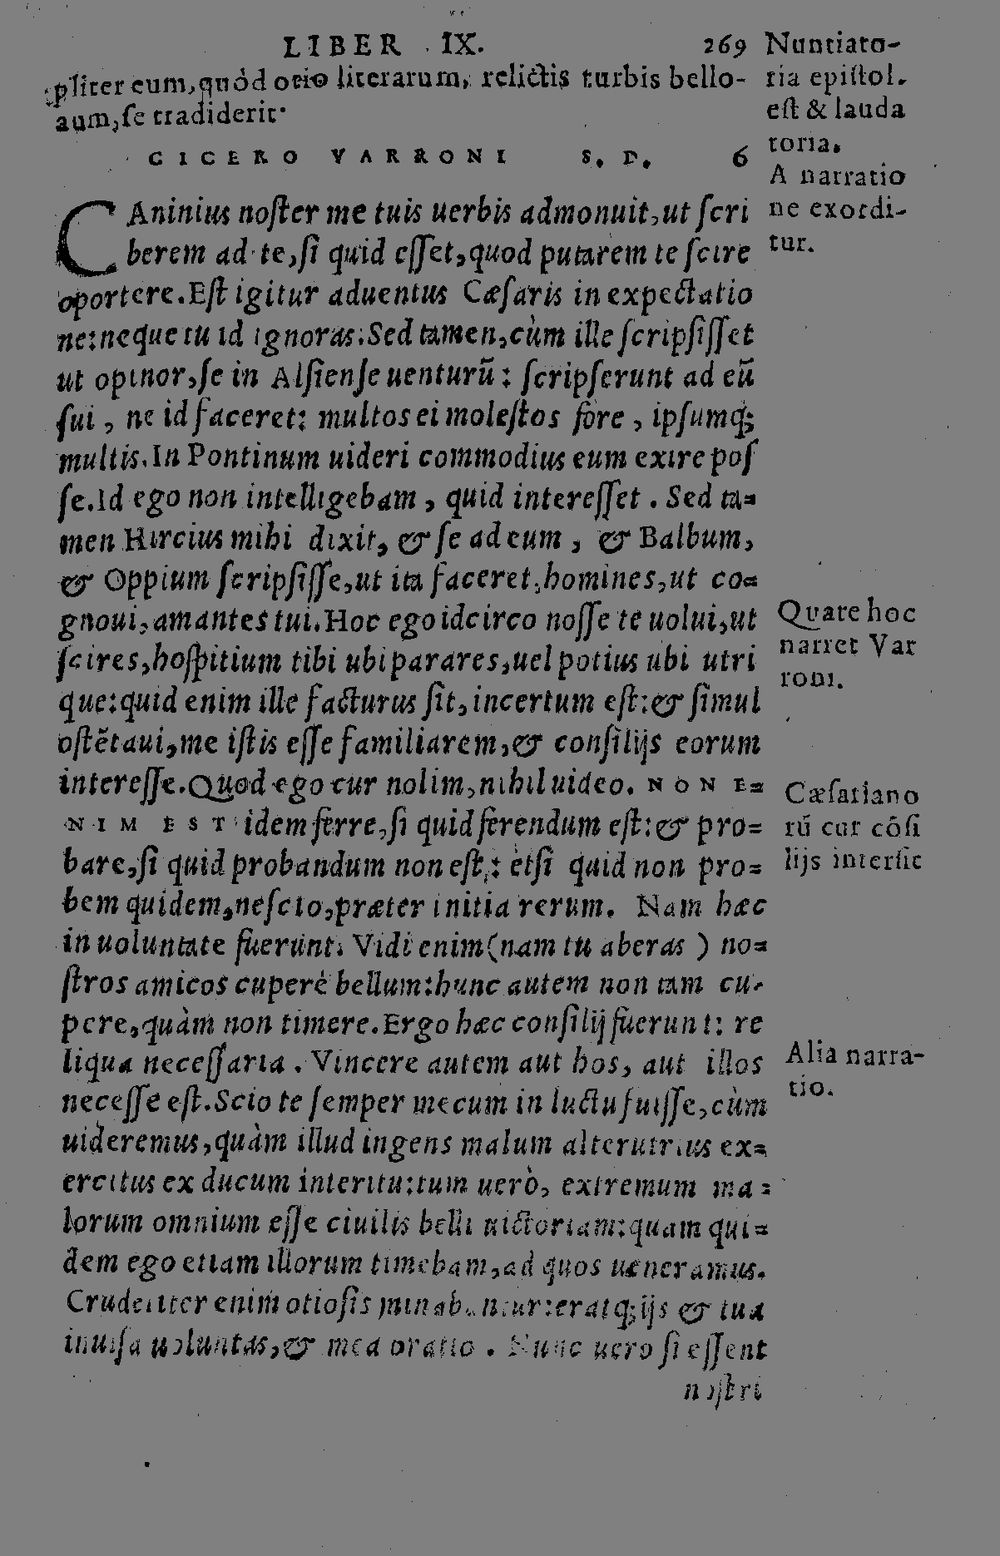 LIBER IX. 269
pliter eum, quòd otio literarum, relictis turbis bello-
aum, se tradiderit.
CICERO VARRONI S. D. 6
CAninius noster me tuis uerbis admonuit, ut scri
berem ad te, si quid esset, quod putarem te scire
oportere. Est igitur aduentus Cæsaris in expectatio
ne: neque tu id ignoras. Sed tamen, cùm ille scripsisset
ut opinor, se in Alsiense uenturū: scripserunt ad eū
sui, ne id faceret: multos ei molestos fore, ipsumq;
multis. In Pontinum uideri commodius eum exire pos
se. Id ego non intelligebam, quid interesset. Sed ta-
men Hircius mihi dixit, & se ad eum, & Balbum,
& Oppium scripsisse, ut ita faceret, homines, ut co-
gnoui, amantes tui. Hoc ego idcirco nosse te uolui, ut
scires, hospitium tibi ubi parares, uel potius ubi utri
que: quid enim ille facturus sit, incertum est: & simul
ostētaui, me istis esse familiarem, & consilijs eorum
interesse. Quod ego cur nolim, nihil uideo. NON E-
NIM EST idem ferre, si quid ferendum est: & pro-
bare, si quid probandum non est: etsi quid non pro-
bem quidem, nescio, præter initia rerum. Nam hæc
in uoluntate fuerunt. Vidi enim (nam tu aberas) no-
stros amicos cuperè bellum: hunc autem non tam cu-
pere, quàm non timere. Ergo hæc consilij fuerunt: re
liqua necessaria. Vincere autem aut hos, aut illos
necesse est. Scio te semper mecum in luctu fuisse, cùm
uideremus, quàm illud ingens malum alterutrius ex-
ercitus ex ducum interitu: tum uerò, extremum ma-
lorum omnium esse ciuilis belli uictoriam: quam qui-
dem ego etiam illorum timebam, ad quos ueneramus.
Crudeliter enim otiosis minabantur: eratq; ijs & tua
inuisa uoluntas, & mea oratio. Nunc uero si essent
nostri
Nuntiato-
ria epistol.
est & lauda
toria.
A narratio
ne exordi-
tur.
Quare hoc
narret Var
roni.
Cæsariano
rū cur cōsi
lijs intersit
Alia narra-
tio.